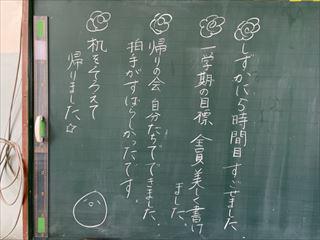 しずかに5時間目すごせました
一学期の目標 全員美しく書け
ました。
帰りの会 自分たちでできました。
拍手がすばらしかったです。
机をそろえて
帰りました☆